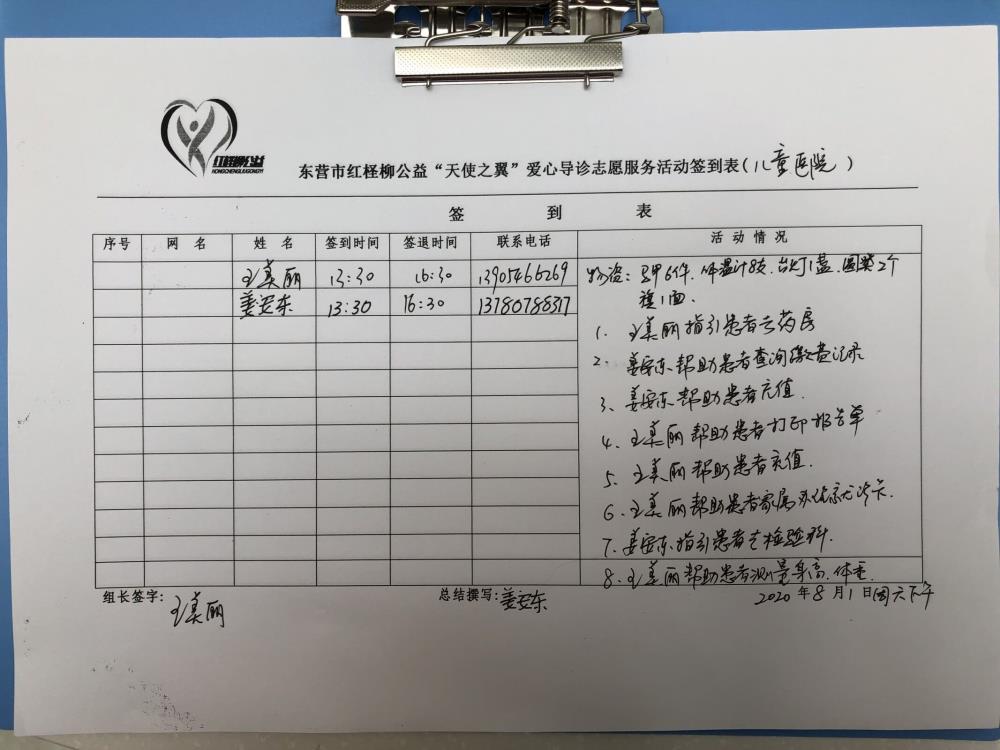 红柽柳公益
HONGCHENGLIUGONGYI
东营市红柽柳公益“天使之翼”爱心导诊志愿服务活动签到表（儿童医院）
签 到 表
序号 网 名 姓 名 签到时间 签退时间 联系电话 活 动 情 况
王美丽 13:30 16:30 13905466269
姜安东 13:30 16:30 13780788317
物资：马甲6件、体温计8支、台灯1盏、圆凳2个
旗1面.
1、王美丽指引患者去药房
2、姜安东帮助患者查询缴费记录
3、姜安东帮助患者充值.
4、王美丽帮助患者打印报告单
5、王美丽帮助患者充值.
6、王美丽帮助患者家属办就诊卡.
7、姜安东指引患者去检验科.
8、王美丽帮助患者测量身高、体重.
组长签字：王美丽 总结撰写：姜安东 2020年8月1日周六下午